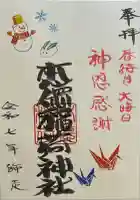 奉拝
春待月 大晦日
神恩感謝
稲荷神社
令和七年師走